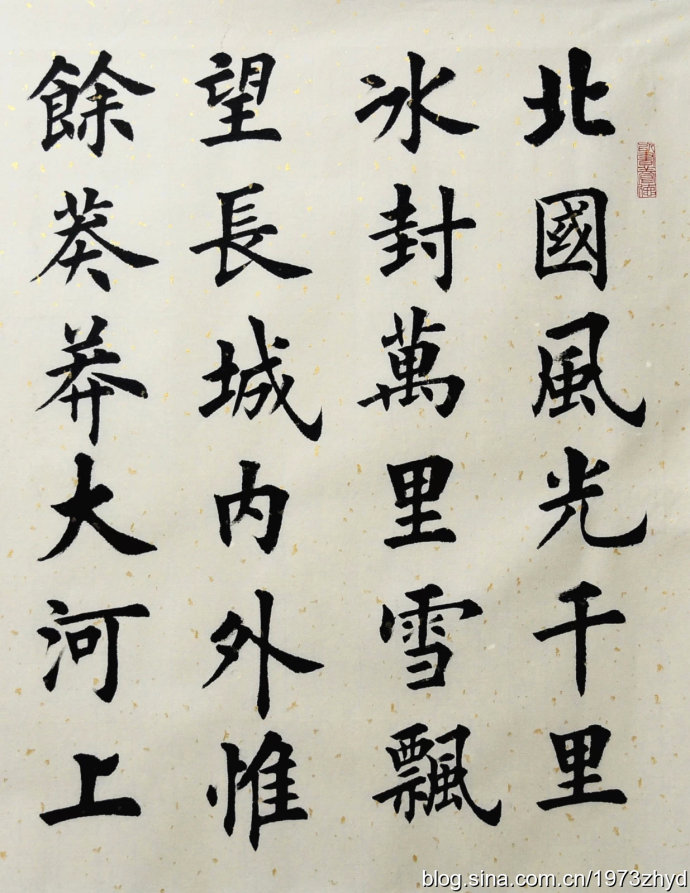 北國風光千里
冰封萬里雪飄
望長城內外惟
餘莽莽大河上
blog.sina.com.cn/1973zhyd